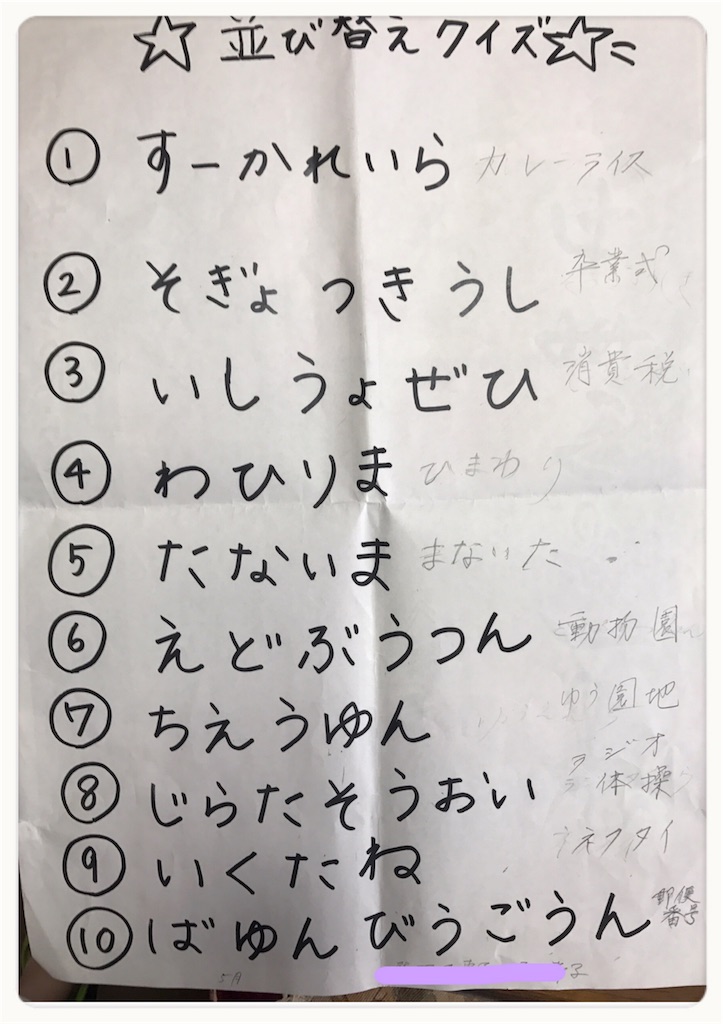 ☆ 並び替えクイズ☆
① すーかれいら カレーライス
② そぎょつきうし 卒業式
③ いしうょぜひ 消費税
④ わひりま ひまわり
⑤ たないま まないた
⑥ えどぶうつん 動物園
⑦ ちえうゆん ゆう園地
⑧ じらたそうおい ラジオ
体操
⑨ いくたね ネクタイ
⑩ ばゆんびうごうん 郵便
番号
5月